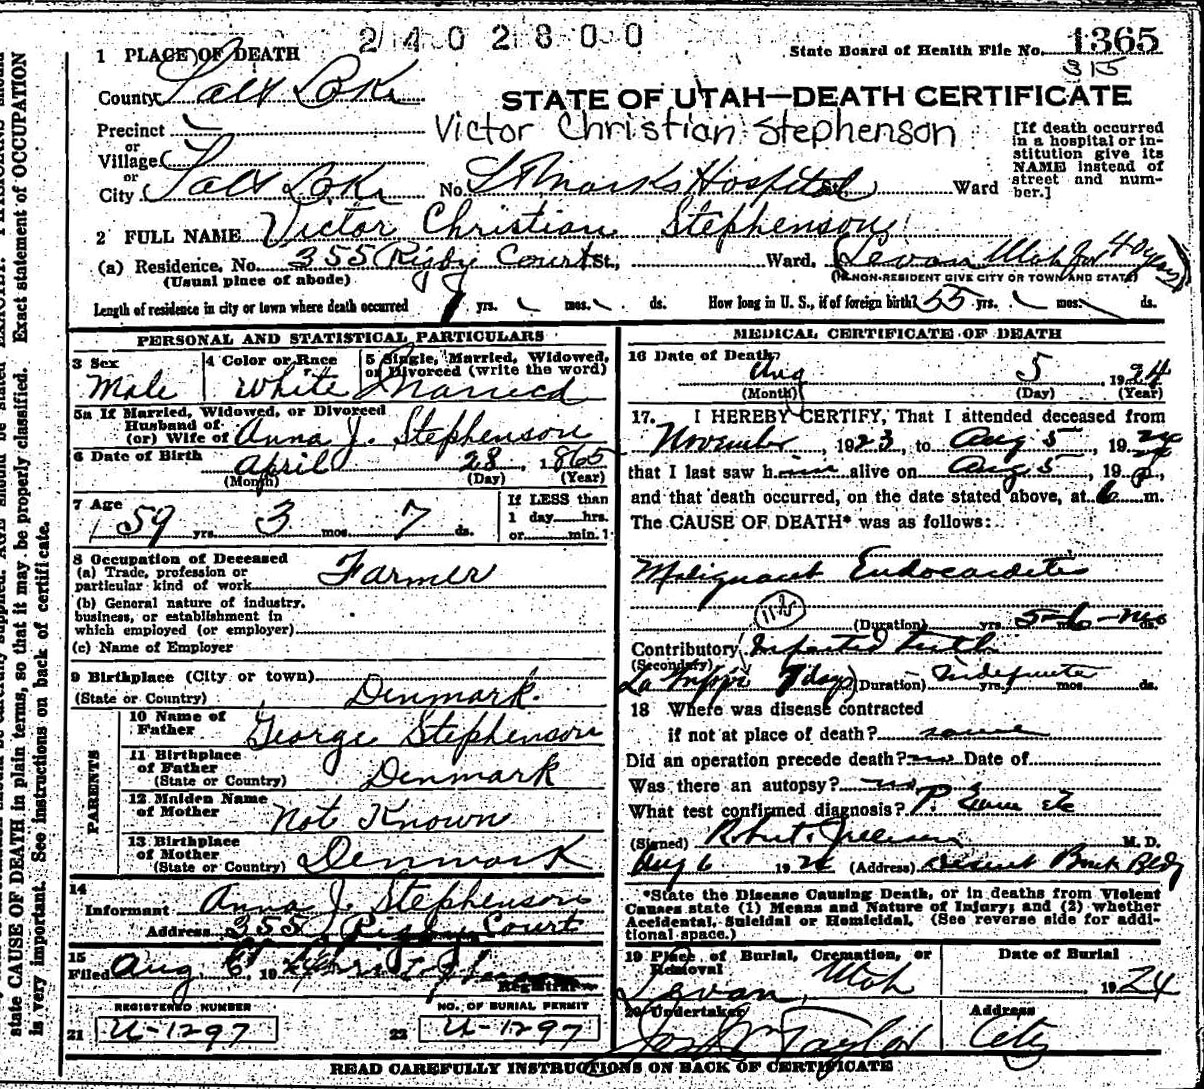 2402800
1 PLACE OF DEATH
State Board of Health File No. 1365
315
County Salt Lake
STATE OF UTAH—DEATH CERTIFICATE
Precinct
Victor Christian Stephenson
[If death occurred in a hospital or institution give its NAME instead of street and number.]
or
Village
or
City Salt Lake No. St Marks Hospital St. Ward
2 FULL NAME Victor Christian Stephenson
(a) Residence, No. 355 Rigby Court St., Ward. (Levan Utah for 40 years)
(Usual place of abode) (If NON-RESIDENT GIVE CITY OR TOWN AND STATE)
Length of residence in city or town where death occurred 1 yrs. mos. ds. How long in U. S., if of foreign birth? 55 yrs. mos. ds.
PERSONAL AND STATISTICAL PARTICULARS
3 Sex
Male
4 Color or Race
White
5 Single, Married, Widowed, or Divorced (write the word)
Married
5a If Married, Widowed, or Divorced
Husband of
(or) Wife of Anna J. Stephenson
6 Date of Birth April 28, 1865
(Month) (Day) (Year)
7 Age
59 yrs. 3 mos. 7 ds.
If LESS than
1 day hrs.
or min.
8 Occupation of Deceased
(a) Trade, profession or
particular kind of work Farmer
(b) General nature of industry,
business, or establishment in
which employed (or employer)
(c) Name of Employer
9 Birthplace (City or town)
(State or Country) Denmark.
PARENTS
10 Name of
Father George Stephenson
11 Birthplace
of Father
(State or Country) Denmark
12 Maiden Name
of Mother Not Known
13 Birthplace
of Mother
(State or Country) Denmark
14
Informant Anna J. Stephenson
Address 355 Rigby Court
15
Filed Aug. 6, 19
Registrar
REGISTERED NUMBER
21 U-1297
NO. OF BURIAL PERMIT
22 U-1297
MEDICAL CERTIFICATE OF DEATH
16 Date of Death
Aug 5, 1924
(Month) (Day) (Year)
17. I HEREBY CERTIFY, That I attended deceased from
November, 1923, to Aug 5, 1924
that I last saw him alive on Aug 5, 19
and that death occurred, on the date stated above, at 6 m.
The CAUSE OF DEATH* was as follows:
Malignant Endocarditis
(Duration) yrs. 5-6- mo ds.
Contributory Impacted teeth
(Secondary)
La Grippe 7 days (Duration) Indefinite yrs. mos. ds.
18 Where was disease contracted
if not at place of death? same
Did an operation precede death? no Date of
Was there an autopsy? no
What test confirmed diagnosis?
(Signed) M. D.
Aug 6 19 (Address) Bank Bldg
*State the Disease Causing Death, or in deaths from Violent
Causes state (1) Means and Nature of Injury; and (2) whether
Accidental, Suicidal or Homicidal. (See reverse side for addi-
tional space.)
19 Place of Burial, Cremation, or
Removal
Levan, Utah
Date of Burial
1924
20 Undertaker
Taylor
Address
City
READ CAREFULLY INSTRUCTIONS ON BACK OF CERTIFICATE
state CAUSE OF DEATH in plain terms, so that it may be properly classified. Exact statement of OCCUPATION
is very important. See instructions on back of certificate.